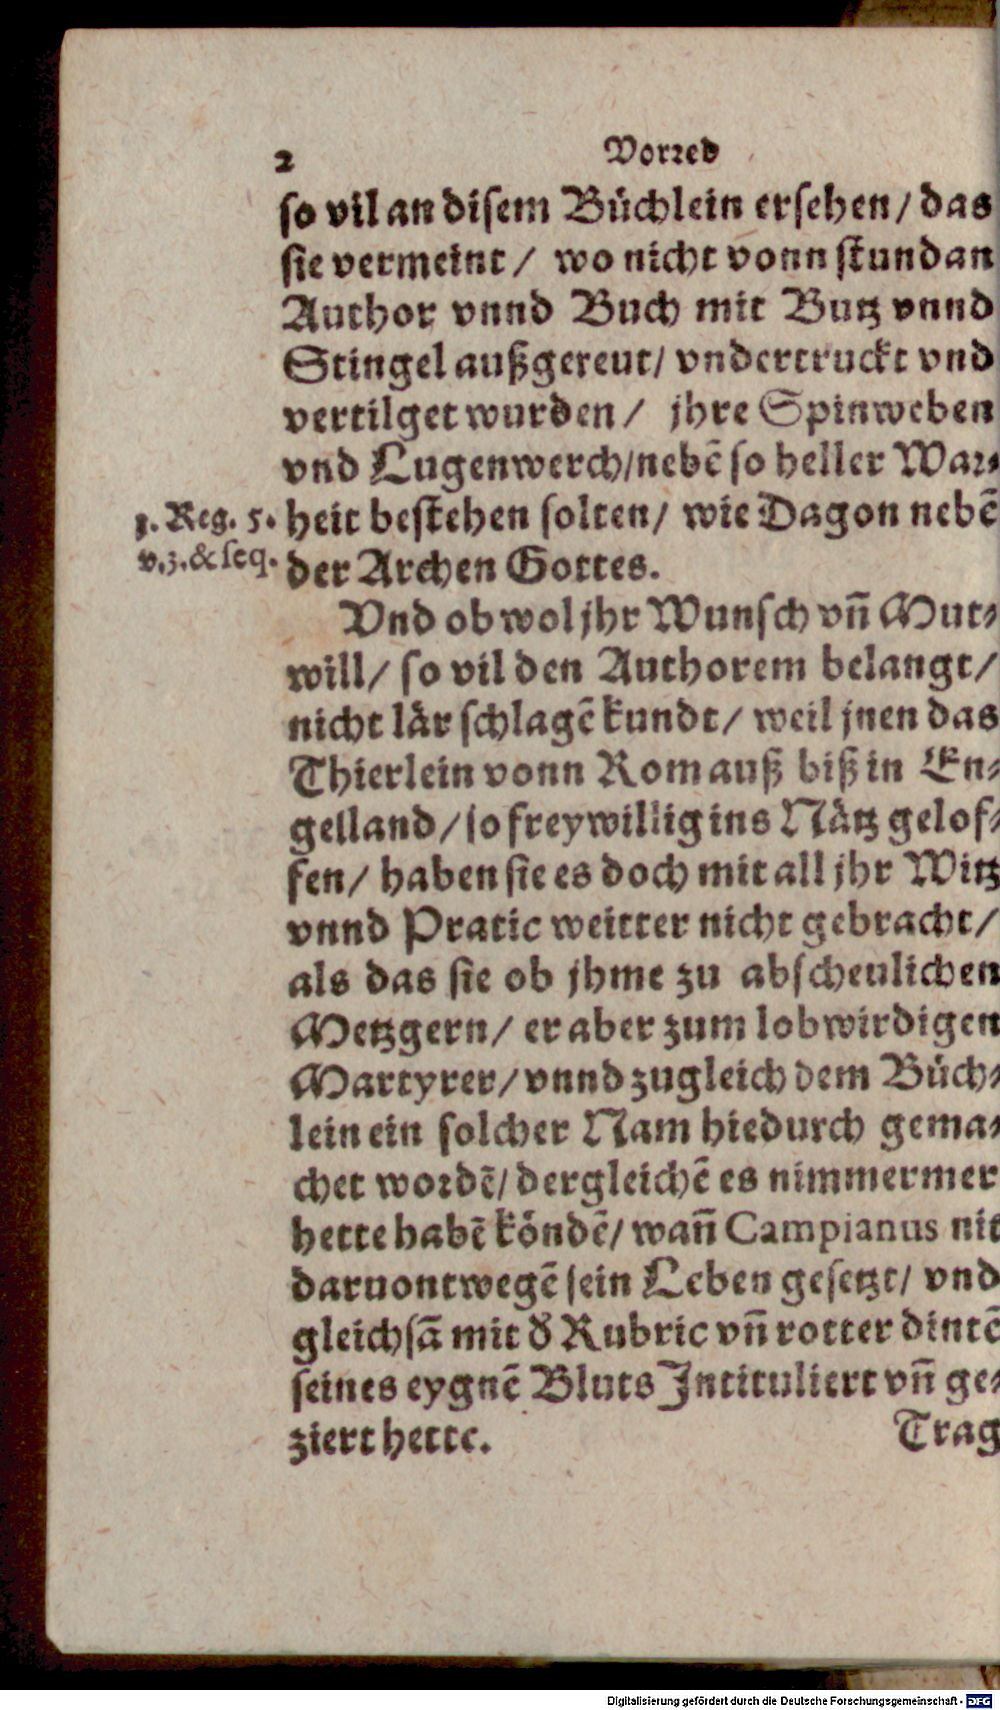 2 Vorred
so vil an disem Büchlein ersehen / das
sie vermeint / wo nicht vonn stund an
Author vnnd Buch mit Butz vnnd
Stingel außgereut / vndertruckt vnd
vertilget wurden / jhre Spinweben
vnd Lugenwerch / nebẽ so heller War-
heit bestehen solten / wie Dagon nebẽ
der Archen Gottes.
1. Reg. 5.
v. 3. & seq.
Vnd ob wol jhr Wunsch vñ Mut-
will / so vil den Authorem belangt /
nicht lår schlagẽ kundt / weil jnen das
Thierlein vonn Rom auß biß in En-
gelland / so freywillig ins Nåtz gelof-
fen / haben sie es doch mit all jhr Witz
vnnd Pratic weitter nicht gebracht /
als das sie ob jhme zu abscheulichen
Metzgern / er aber zum lobwirdigen
Martyrer / vnnd zugleich dem Büch-
lein ein solcher Nam hiedurch gema-
chet wordẽ / dergleichẽ es nimmermer
hette habẽ köndẽ / wañ Campianus nit
daruontwegẽ sein Leben gesetzt / vnd
gleichsã mit d̃ Rubric vñ rotter dintẽ
seines eygnẽ Bluts Jntituliert vñ ge-
ziert hette.
Trag
Digitalisierung gefördert durch die Deutsche Forschungsgemeinschaft - DFG